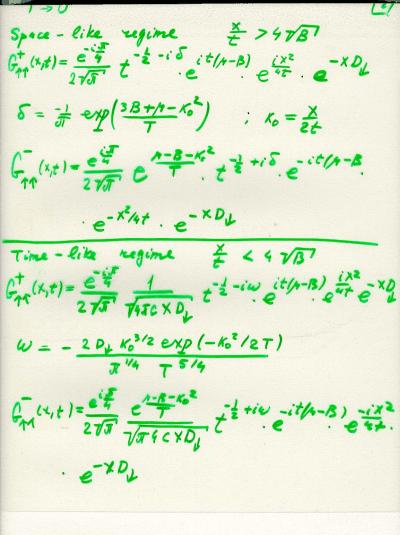 T → 0 [2]
Space-like regime x/t > 4√B
G⁺↑↑(x,t) = e^{-iπ/4}/(2√π) t^{-1/2 - iδ} · e^{it(μ-B)} e^{ix²/4t} · e^{-xD↓}
δ = -1/π exp((3B+μ-κ₀²)/T) ; κ₀ = x/2t
G⁻↑↑(x,t) = e^{iπ/4}/(2√π) e^{(μ-B-κ₀²)/T} · t^{-1/2+iδ} · e^{-it(μ-B}
· e^{-x²/4t} · e^{-xD↓}
Time-like regime x/t < 4√B
G⁺↑↑(x,t) = e^{-iπ/4}/(2√π) 1/√(4πcxD↓) t^{-1/2-iω} · e^{it(μ-B)} e^{ix²/4t} e^{-xD↓}
ω = - 2D↓ κ₀^{3/2} exp(-κ₀²/2T) / (π^{1/4} T^{5/4})
G⁻↑↑(x,t) = e^{iπ/4}/(2√π) e^{(μ-B-κ₀²)/T}/√(π4cxD↓) t^{-1/2+iω} · e^{-it(μ-B)} e^{-ix²/4t} ·
· e^{-xD↓}